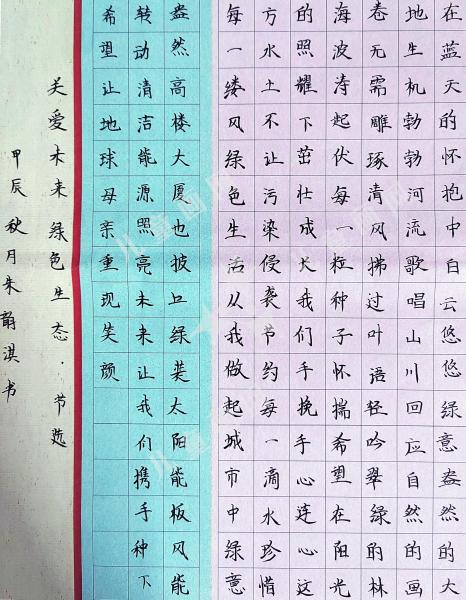 在蓝天的怀抱中白云悠悠绿意盎然的大
地生机勃勃河流歌唱山川回应自然的画
卷无需雕琢清风拂过叶语轻吟翠绿的林
海波涛起伏每一粒种子怀揣希望在阳光
的照耀下茁壮成长我们手挽手心连心这
方水土不让污染侵袭节约每一滴水珍惜
每一缕风绿色生活从我做起城市中绿意
盎然高楼大厦也披上绿装太阳能板风能
转动清洁能源照亮未来让我们携手种下
希望让地球母亲重现笑颜
关爱未来绿色生态·节选
甲辰秋月朱韵淇书